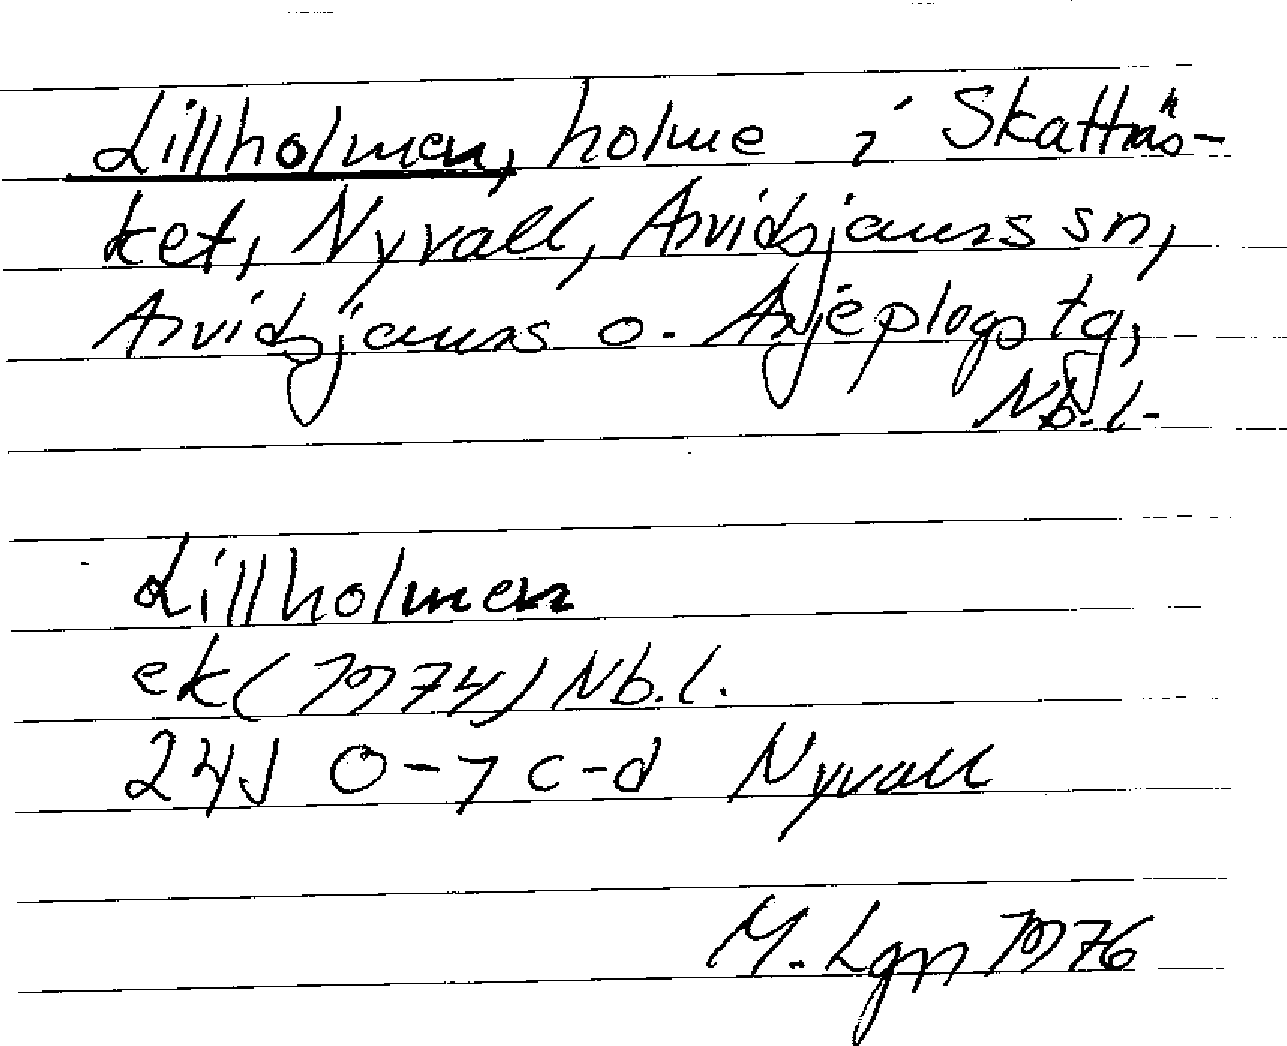 Lillholmen, holme i Skatträs-
ket, Nyvall, Arvidsjaurs sn,
Arvidsjaurs o. Arjeplogs tg,
Nb.l.
Lillholmen
ek (1974) Nb.l.
24J 0-1 c-d Nyvall
M. Lgn 1976